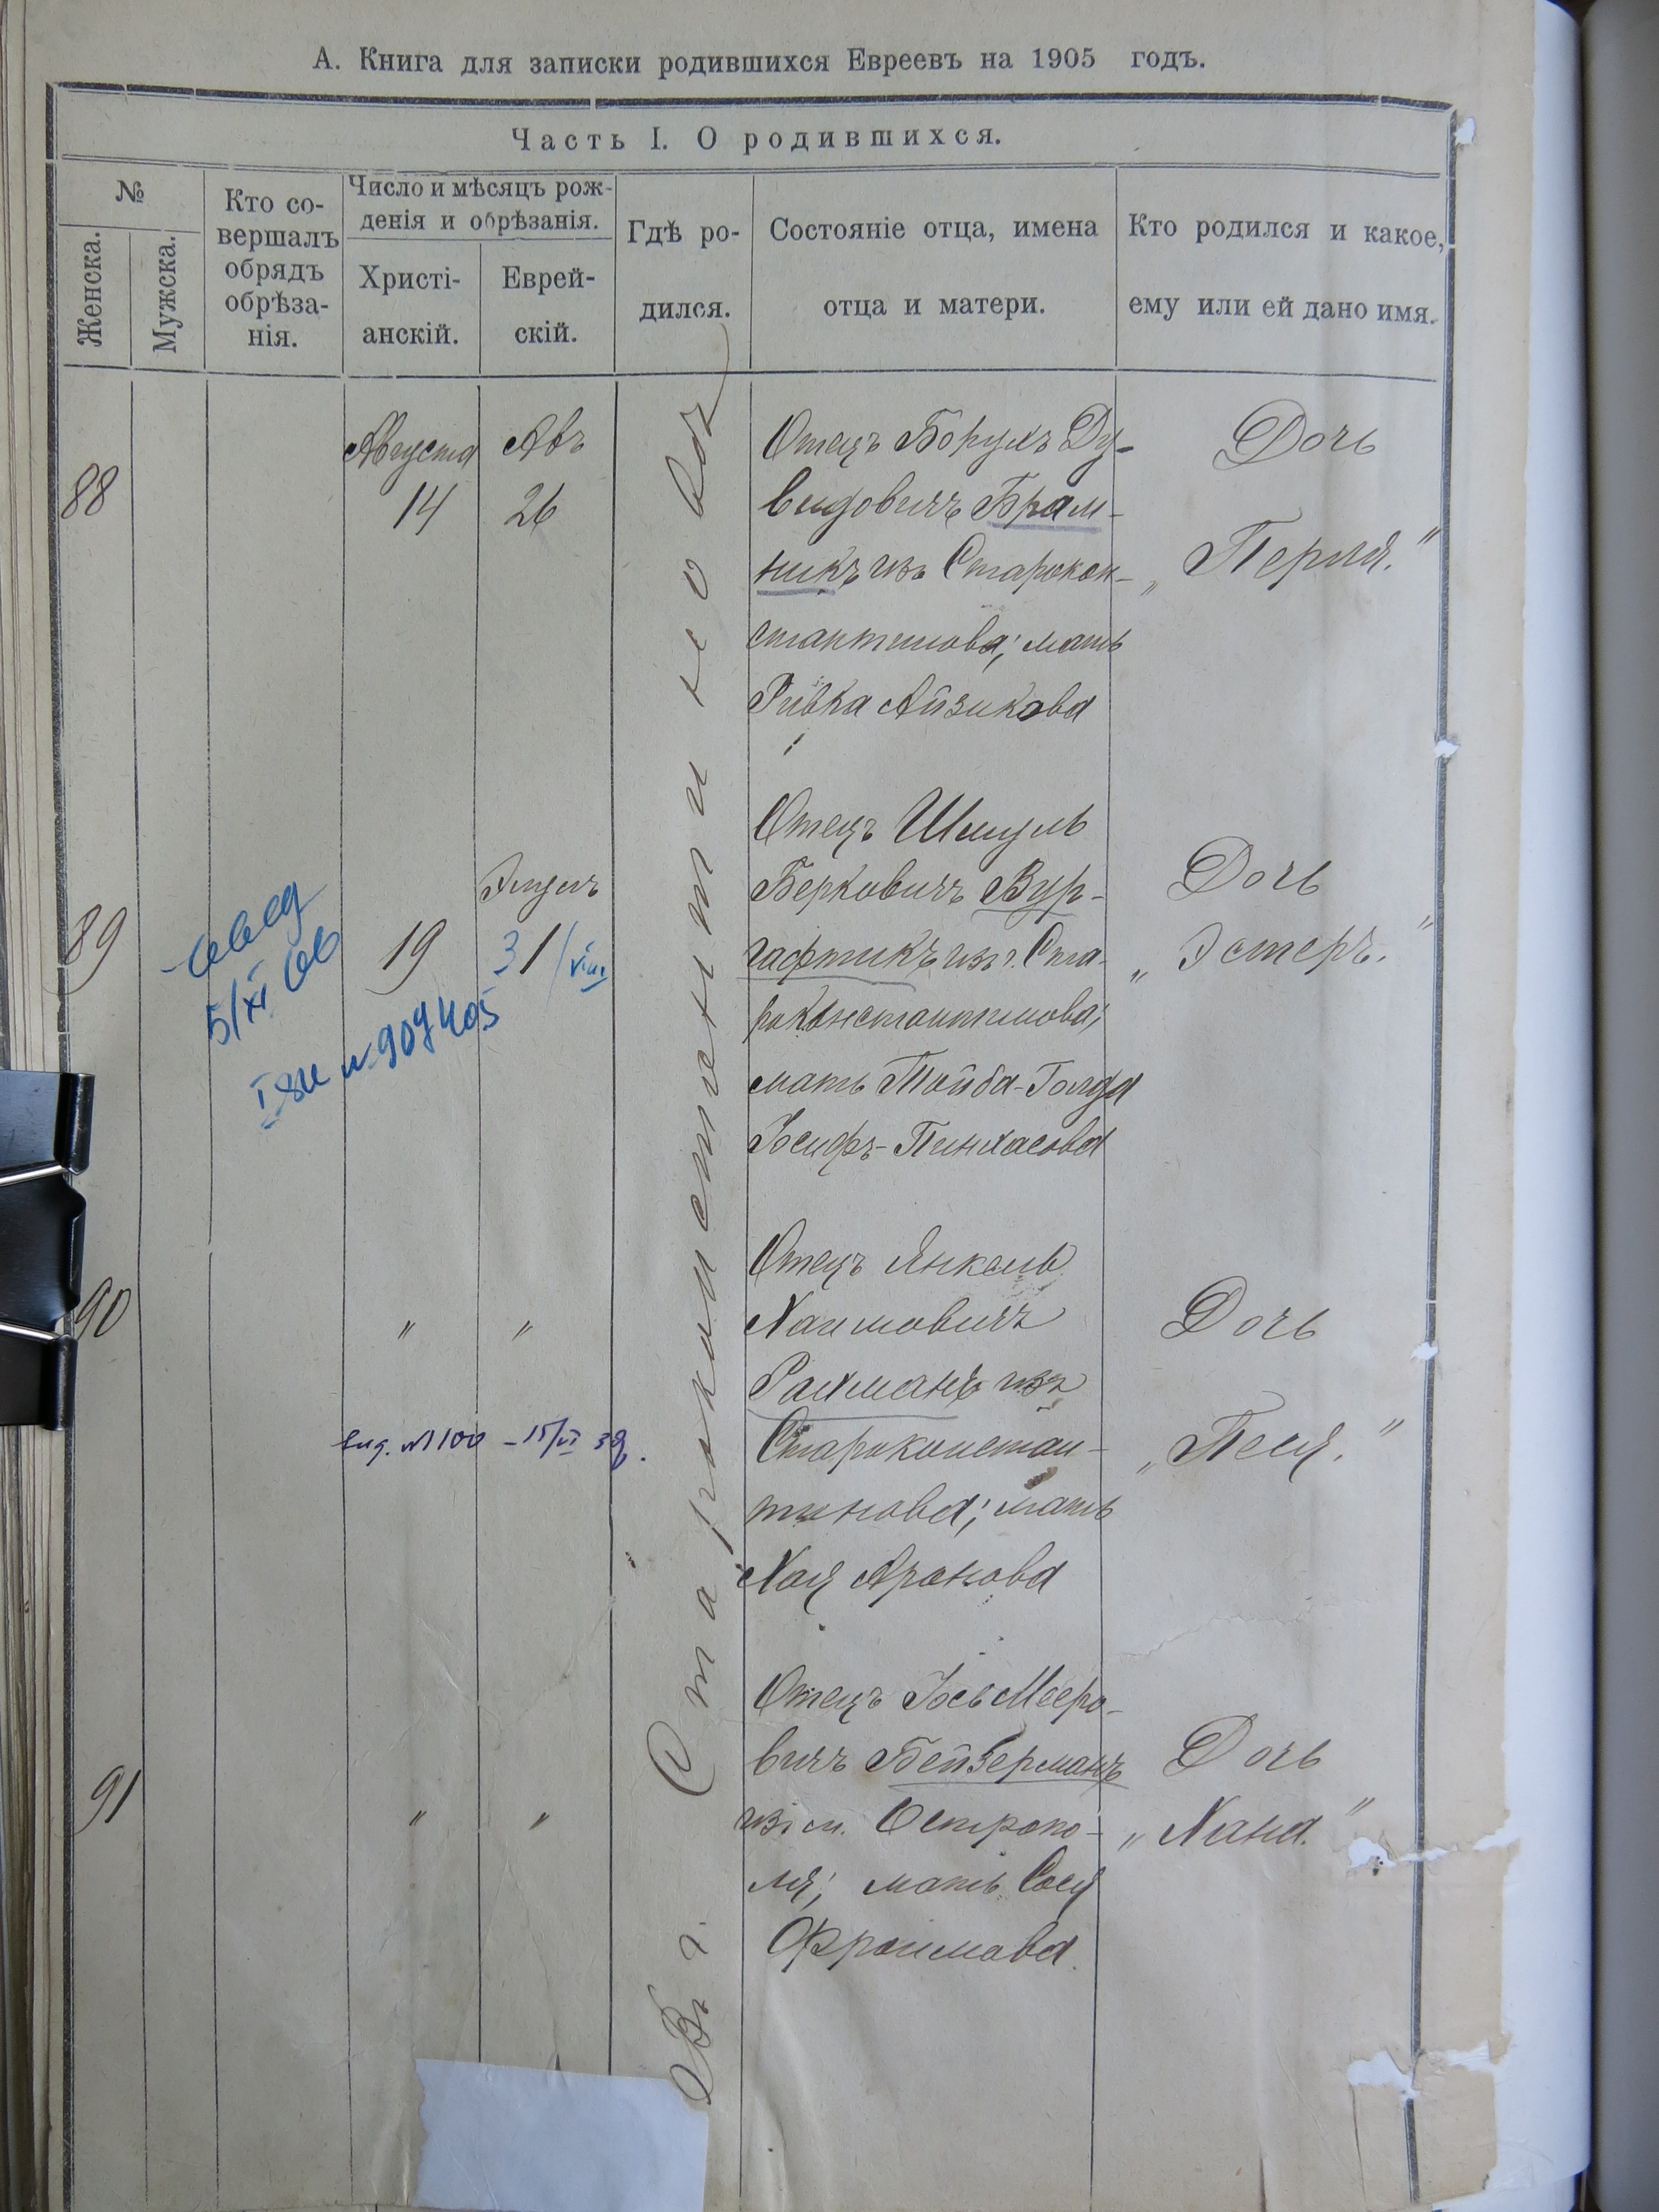 А. Книга для записки родившихся Евреевъ на 1905 годъ.
Часть I. О родившихся.
№
Женска.
Мужска.
Кто со-
вершалъ
обрядъ
обрѣза-
нія.
Число и мѣсяцъ рож-
денія и обрѣзанія.
Христі-
анскій.
Еврей-
скій.
Гдѣ ро-
дился.
Состояніе отца, имена
отца и матери.
Кто родился и какое,
ему или ей дано имя.
Въ г. Староконстантиновѣ
88
Августа
14
Авъ
26
Отецъ Борухъ Ду-
видовичъ Брам-
никъ изъ Старокон-
стантинова; мать
Ривка Айзикова
Дочь
„Перля."
89
19
Элулъ
31/VIII
5/XI
Отецъ Шмуль
Берковичъ Вур-
гафтикъ изъ г. Ста-
роконстантинова;
мать Тойба-Голда
Іосифъ-Пинхасова
Дочь
„Эстеръ."
90
"
"
вид. №1100 - 15/VI 39.
Отецъ Янкель
Хаимовичъ
Рахманъ изъ
Староконстан-
тинова; мать
Хая Аронова
Дочь
„Песя."
91
"
"
Отецъ Іось Мееро-
вичъ Бейзерманъ
изъ м. Остропо-
ля; мать Сося
Фроимова
Дочь
„Хана."